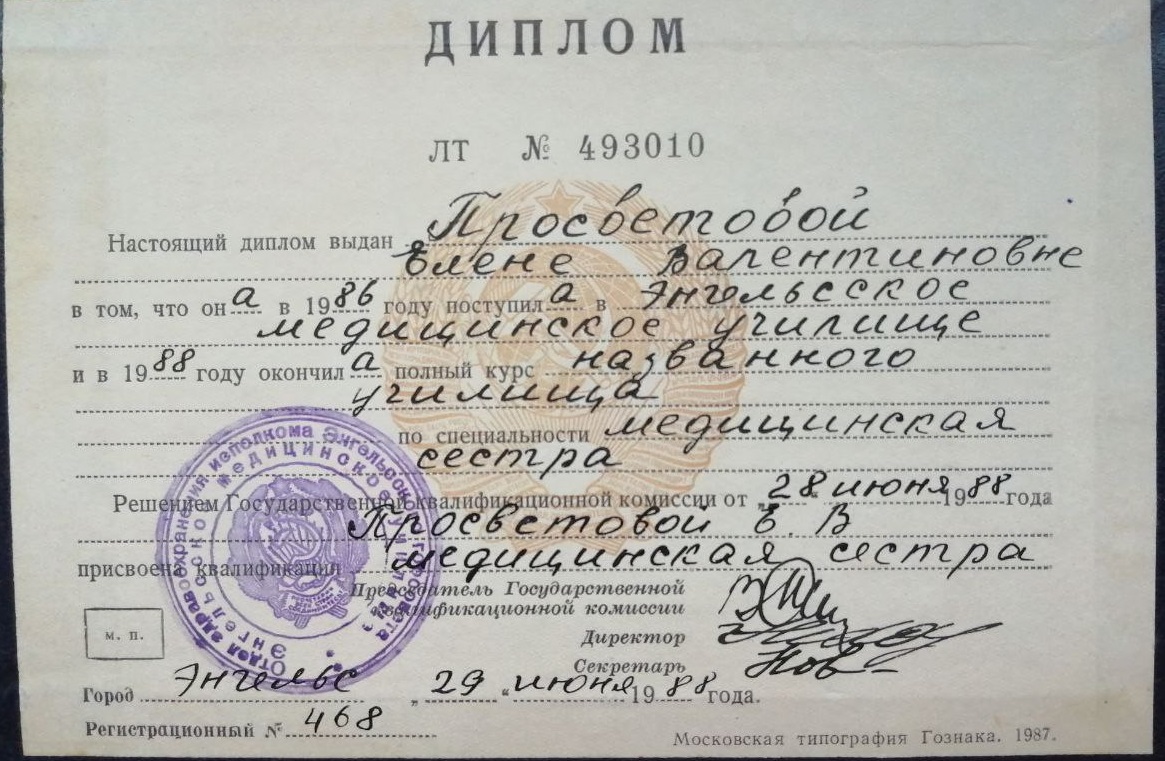 ДИПЛОМ
ЛТ № 493010
Настоящий диплом выдан Просветовой
Елене Валентиновне
в том, что он а в 1986 году поступил а в Энгельсское
медицинское училище
и в 1988 году окончил а полный курс названного
училища
по специальности медицинская
сестра
Решением Государственной квалификационной комиссии от „28" июня 1988 года
Просветовой Е. В
присвоена квалификация медицинская сестра
Председатель Государственной
квалификационной комиссии
Директор
Секретарь
м. п.
Город Энгельс „29" июня 1988 года.
Регистрационный № 468
Московская типография Гознака. 1987.
Отдел здравоохранения исполкома Энгельсского
Энгельсское медицинское училище